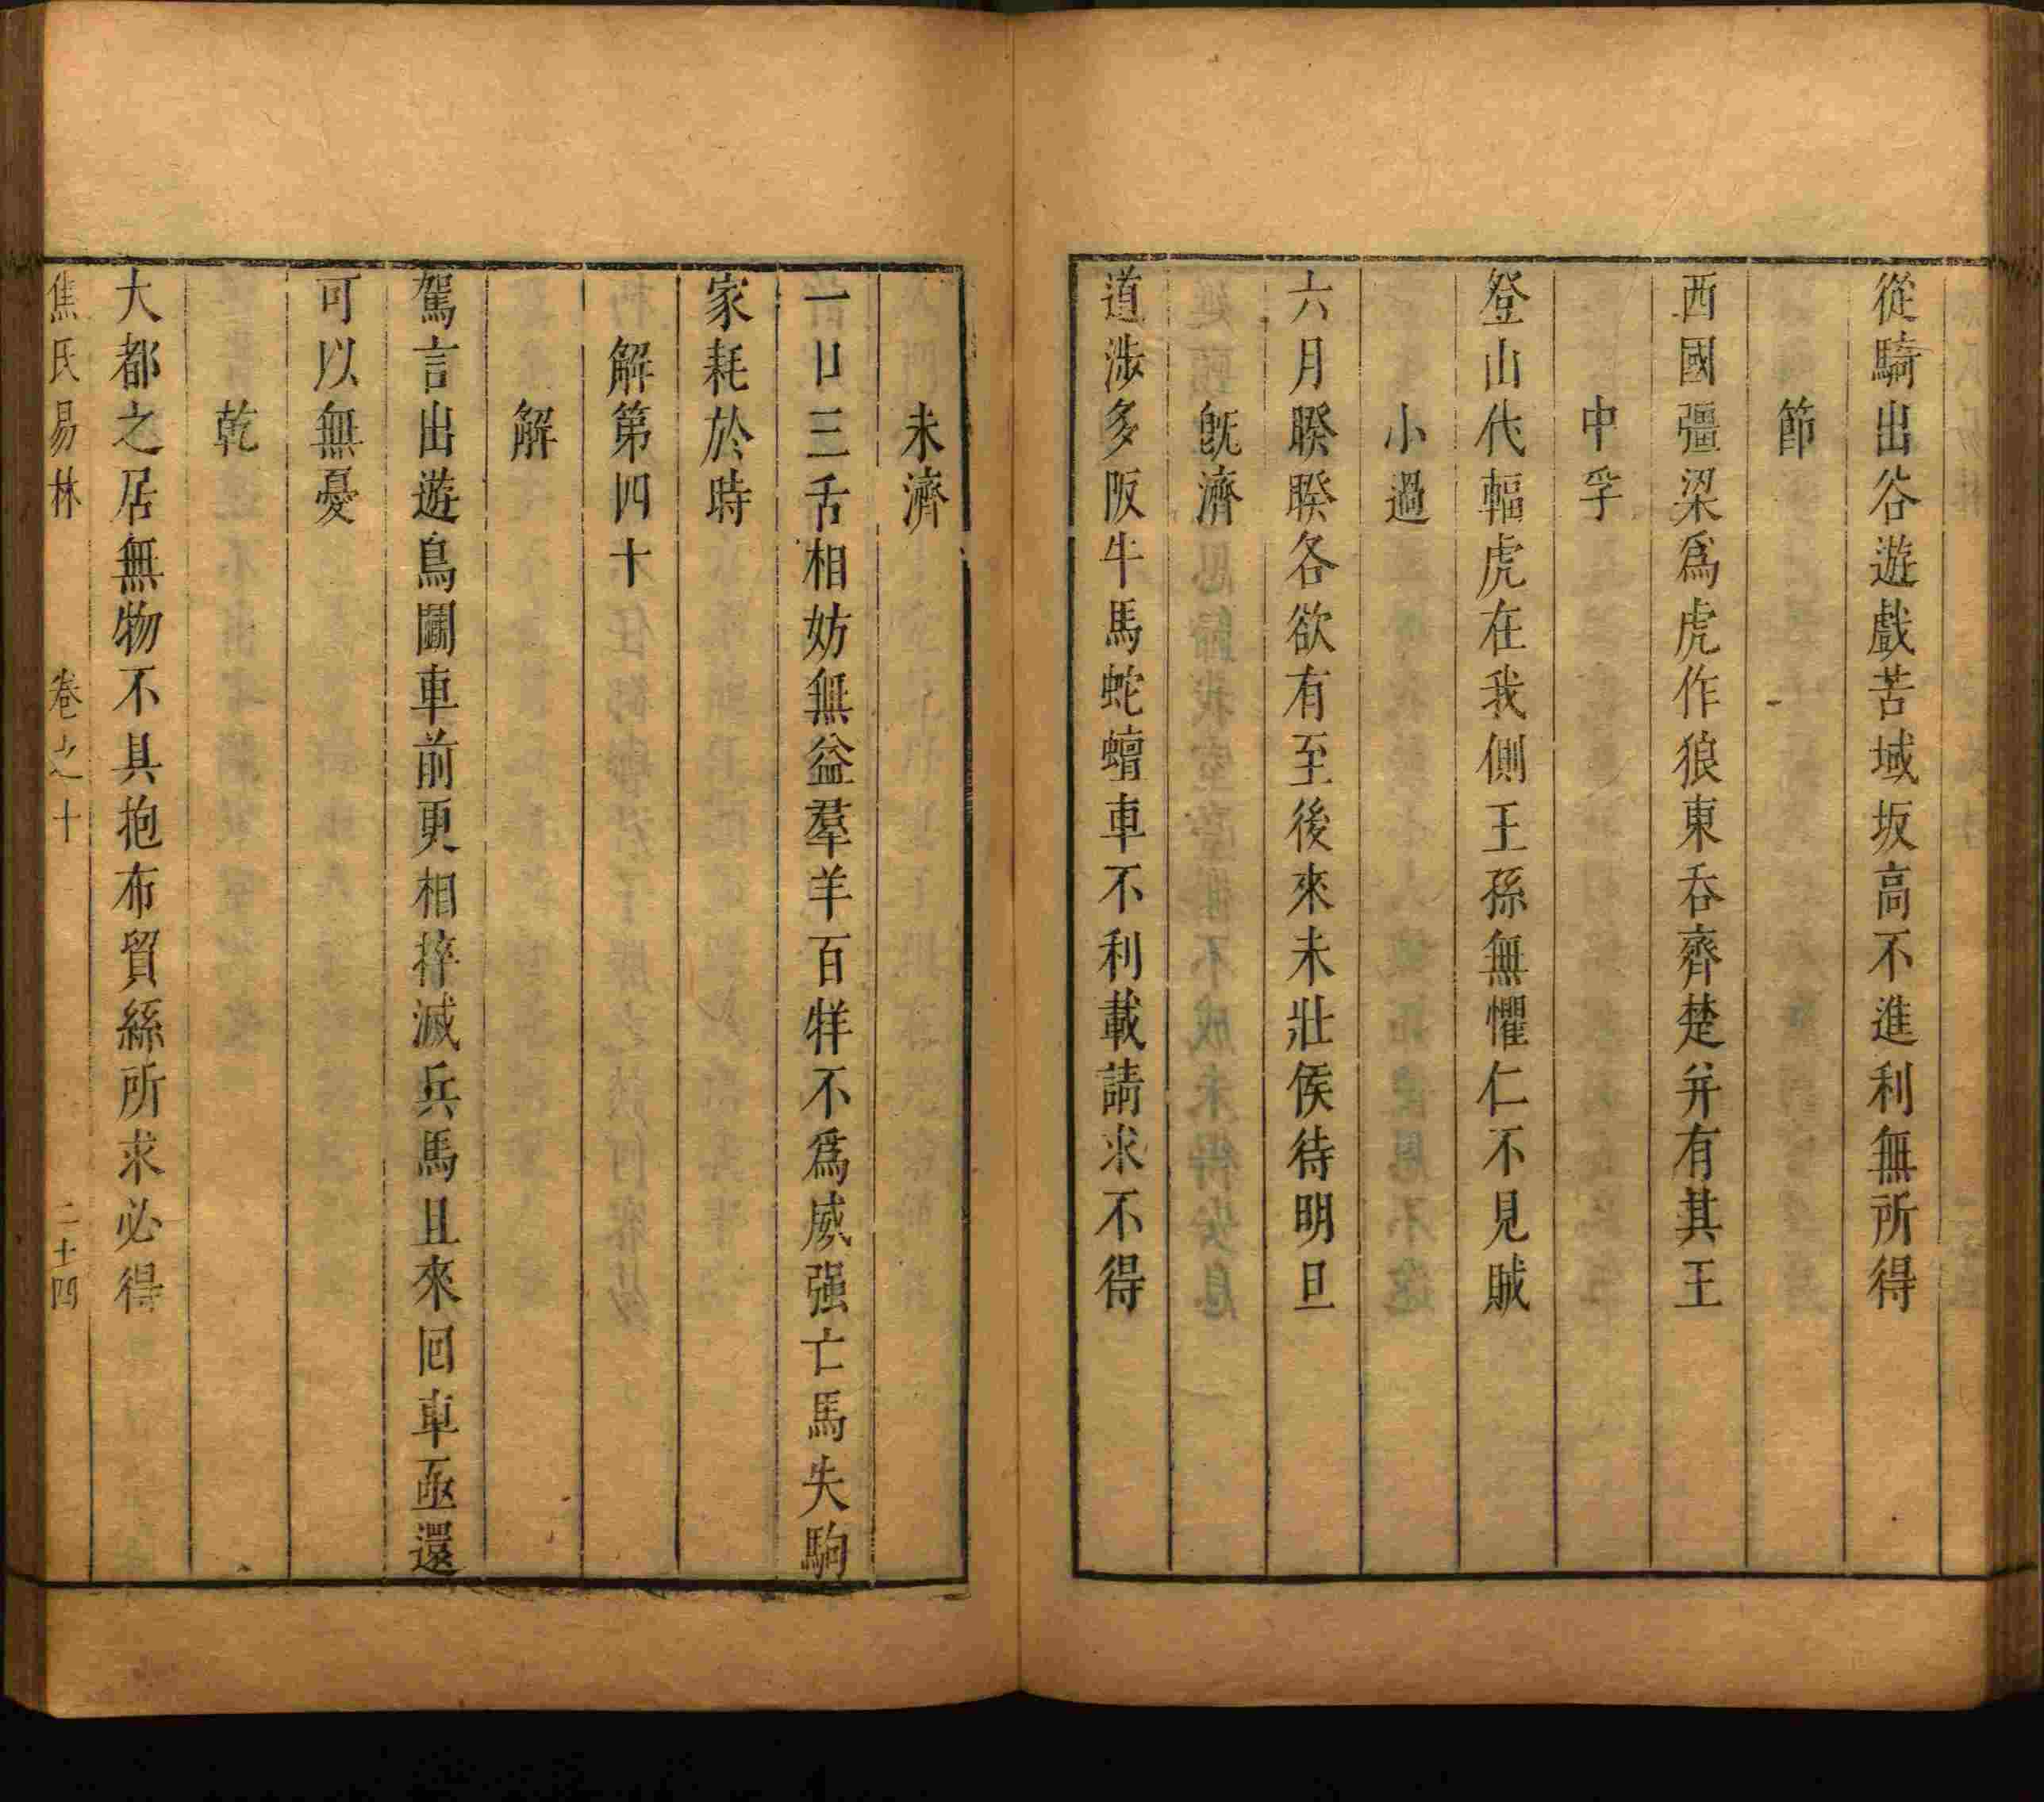 從騎出谷遊戲苦域坂高不進利無所得
節
西國彊梁爲虎作狼東吞齊楚并有其王
中孚
登山伐輻虎在我側王孫無懼仁不見賊
小過
六月睽睽各欲有至後來未壯俟待明旦
旣濟
道涉多阪牛馬蛇蟺車不利載請求不得
未濟
一口三舌相妨無益羣羊百牂不爲威强亡馬失駒
家耗於時
解第四十
解
駕言出遊鳥鬭車前更相捽滅兵馬且來回車亟還
可以無憂
乾
大都之居無物不具抱布貿絲所求必得
焦氏易林 卷之十 二十四